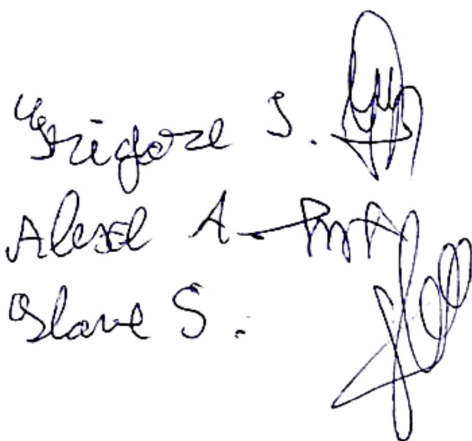 Grigore S.
Alexei A.
Slave S.